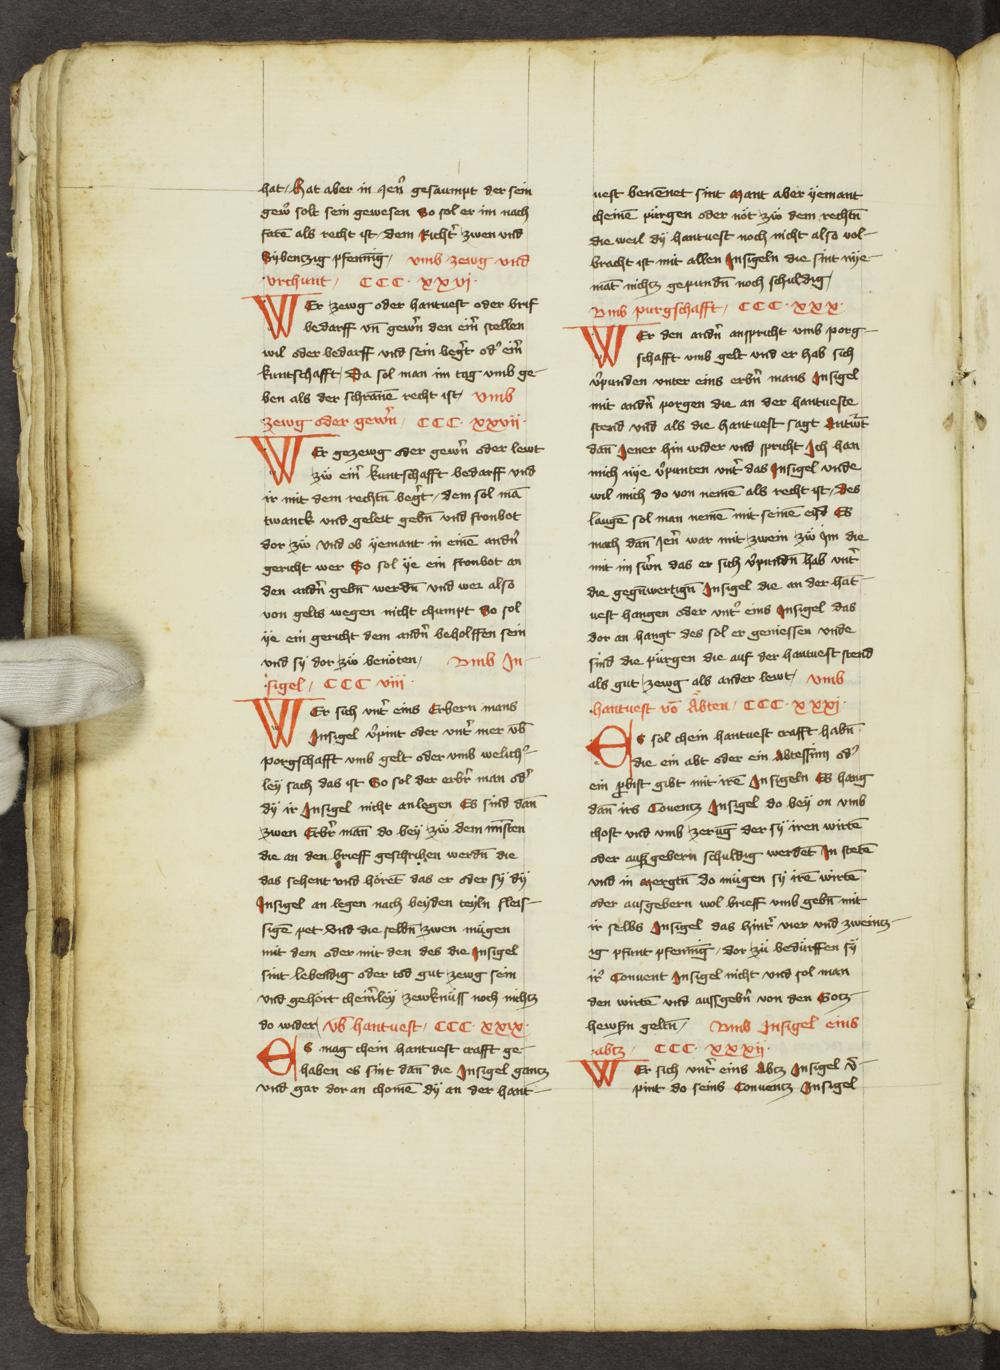 hat / hat aber in Jen̄ gesaumpt der sein
gew̄ solt sein gewesen So sol er im nach
faren als recht ist / dem Richt̄ zwen und
Sybenczig pfennig / umb zewg und
vrchunt / CCC · xxvi ·
WEr zewg oder hantvest oder brif
bedarff vn̄ gewn̄ den ein̄ stellen
wil oder bedarff und sein begt̄ od' ein̄
kuntschafft / Da sol man im tag umb ge-
ben als der schranē recht ist / umb
zewg oder gewn̄ / CCC · xxvii ·
WEr gezewg oder gewn̄ oder lewt
zů ein̄ kuntschafft bedarff und
ir mit dem rechtn̄ begt̄ / dem sol mā
twanck und geleit gebn̄ und fronbot
dor zů und ob yemant in einē andn̄
gericht wer So sol ye ein fronbot an
den andn̄ gebn̄ werdn̄ und wer also
von gelts wegen nicht chumpt So sol
ye ein gericht dem andn̄ beholffen sein
und sy dor zů benöten / Umb In-
sigel / CCC viii ·
WEr sich unt̄ eins Erbern mans
Insigel v̄pint oder unt̄ mer vb̄
porgschafft umb gelt oder umb welich'-
ley sach das ist So sol der erbr̄ man od'
dy ir Insigel nicht anlegen Es sind dan̄
zwen Erbr̄ man̄ do bey zů dem mīsten
die an den brieff geschriben werdn̄ die
das sehent und hörēt das er oder sy dy
Insigel an legen nach beyden teyln fleis-
sigē pet Und die selbn̄ zwen mügen
mit dem oder mit den des die Insigel
sint lebendig oder tod gut zewg sein
und gehört chein̄ley zewknüss noch nichtz
do wider / vb̄ hantvest / CCC · xxix ·
ES mag chein hantvest crafft ge-
haben es sint dan̄ die Insigel gantz
und gar dor an chomē dy an der hant-
vest benēnet sint Mant aber yemant
cheinē pürgen oder nöt zů dem rechtn̄
die weil dy hantvest noch nicht also vol-
bracht ist mit allen Insigeln die sint nye-
māt nichtz gepundn̄ noch schuldig /
Umb purgschafft / CCC · xxx ·
WEr den andn̄ anspricht umb porg-
schafft umb gelt und er hab sich
v̄punden unter eins erbn̄ mans Insigel
mit andn̄ porgen die an der hantveste
stend und als die hantvest sagt Antwt̄
dan̄ Jener hin wider und spricht Ich han
mich nye v̄punten unt̄ das Insigel unde
wil mich do von nemē als recht ist / Des
laugē sol man nemē mit seinē eyd Es
mach dan̄ Jen̄ war mit zwein zů Im die
mit im swn̄ das er sich v̄pundn̄ hab unt̄
die gegn̄wertign̄ Insigel die an der hāt-
vest hangen oder unt̄ eins Insigel das
dor an hangt des sol er geniessen unde
sind die pürgen die auf der hantvest stend
als gut zewg als ander lewt / umb
hantvest vō Äbten / CCC · xxxi ·
ES sol chein hantvest crafft habn̄
die ein abt oder ein Abtessinn od'
ein probist gibt mit irē Insigeln Es hang
dan̄ irs Coventz Insigel do bey on umb
chost und umb zeruḡ der sy iren wirtē
oder auszgebern schuldig werdēt In stetē
und in Mergtn̄ do mügen sy irē wirtē
oder ausgebern wol brieff umb gebn̄ mit
ir selbs Insigel das hint̄ vier und zweintz-
ig pfunt pfennīg / dor zů bedürffen sy
ir̄ Convent Insigel nicht und sol man
den wirtē und ausgebn̄ von den Gotz
hewsn̄ geltn̄ / Umb Insigel eins
abtz / CCC · xxxii ·
WEr sich unt̄ eins Abtz Insigel v̄-
pint do seins Conventz Insigel